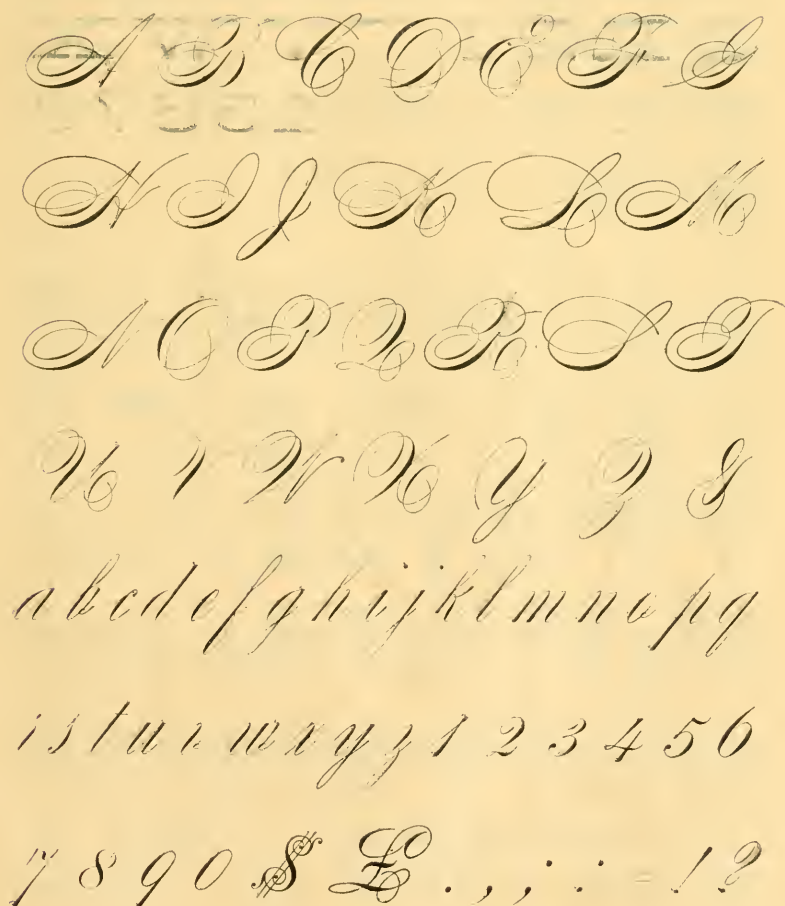 A B C D E F G
H I J K L M
N O P Q R S T
U V W X Y Z &
a b c d e f g h i j k l m n o p q
r s t u v w x y z 1 2 3 4 5 6
7 8 9 0 $ £ . , ; : - ! ?